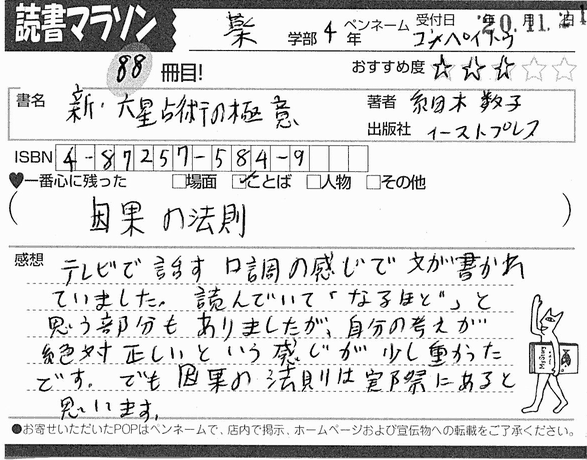 読書マラソン
薬 学部 4 年 ペンネーム コメヘイトウ 受付日 20.11.
88 冊目! おすすめ度 ☆☆☆☆☆
書名 新・六星占術の極意 著者 細木数子
出版社 イーストプレス
ISBN 4-87257-584-9
♥一番心に残った □場面 ☑ことば □人物 □その他
(因果の法則)
感想 テレビで話す口調の感じで文が書かれ
ていました。読んでいて「なるほど」と
思う部分もありましたが、自分の考えが
絶対正しいという感じが少し重かった
です。でも因果の法則は実際にあると
思います。
●お寄せいただいたPOPはペンネームで、店内で掲示、ホームページおよび宣伝物への転載をご了承ください。